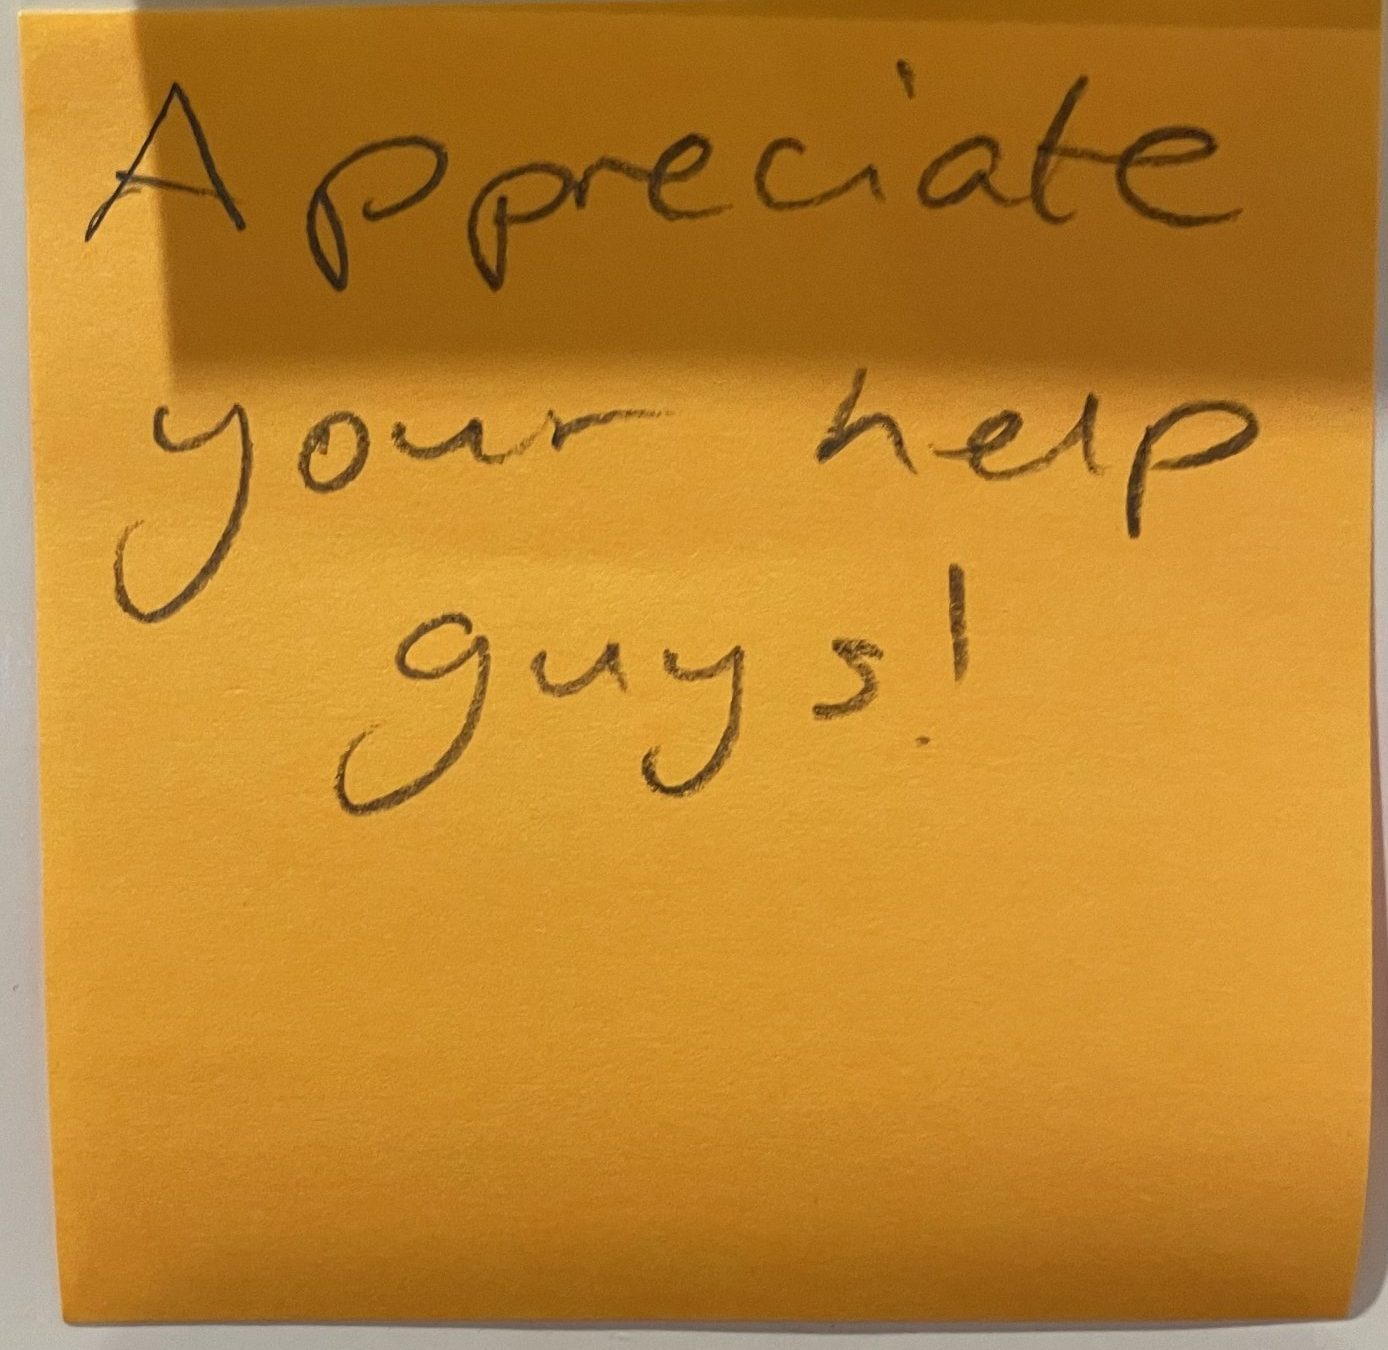 Appreciate
your help
guys!